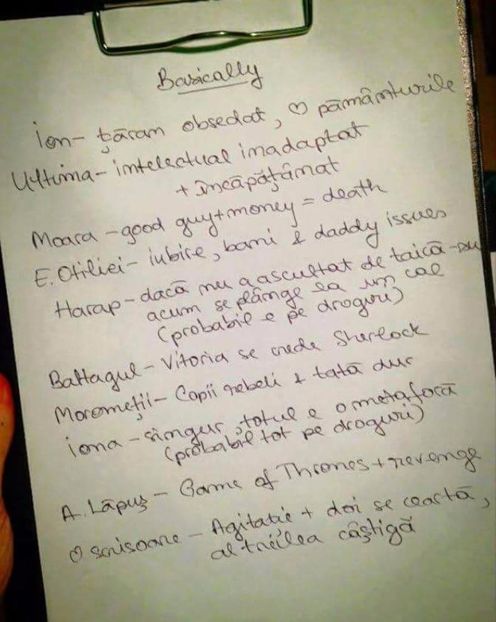 Basically
Ion - țăran obsedat, ♡ pământurile
Ultima - intelectual inadaptat
+ încăpățânat
Moara - good guy + money = death
E. Otiliei - iubire, bani & daddy issues
Harap - dacă nu a ascultat de taică-su
acum se plânge la un cal
(probabil e pe droguri)
Baltagul - Vitoria se crede Sherlock
Moromeții - Copii rebeli & tată dur
Iona - singur, totul e o metaforă
(probabil tot pe droguri)
A. Lăpuș - Game of Thrones + revenge
O scrisoare - Agitație + doi se ceartă,
al treilea câștigă